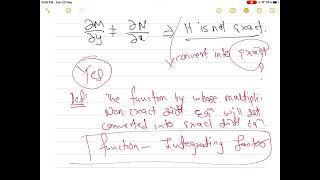 ∂M/∂y ≠ ∂N/∂x ⇒ It is not Exact.
convert into Exact
Yes
Def: The function by whose multipli.
Non exact diff eqn will get
converted into exact diff eqn.
function - Integrating Factor